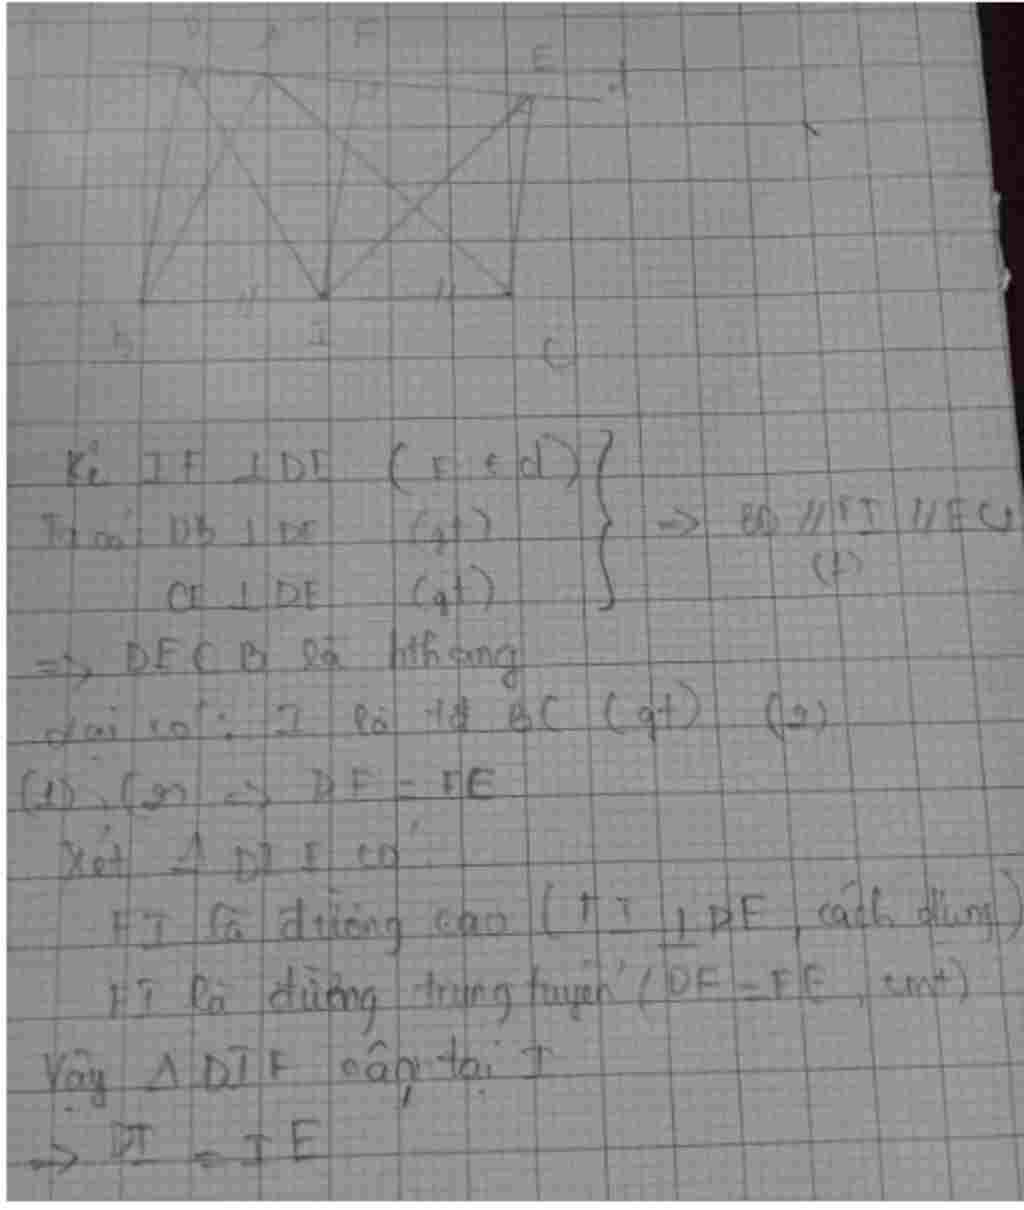 D A F E d
B I C
Kẻ IF ⊥ DE (F ∈ d)
Ta có: DB ⊥ DE (gt)
CE ⊥ DE (gt)
=> BD // FI // EC
(1)
=> DECB là hthang
Lại có: I là tđ BC (gt) (2)
(1), (2) => DF = FE
Xét Δ DIE có
FI là đường cao (FI ⊥ DE, cách dựng)
FI là đường trung tuyến (DF = FE, cmt)
Vậy Δ DIE cân tại I
=> DI = IE